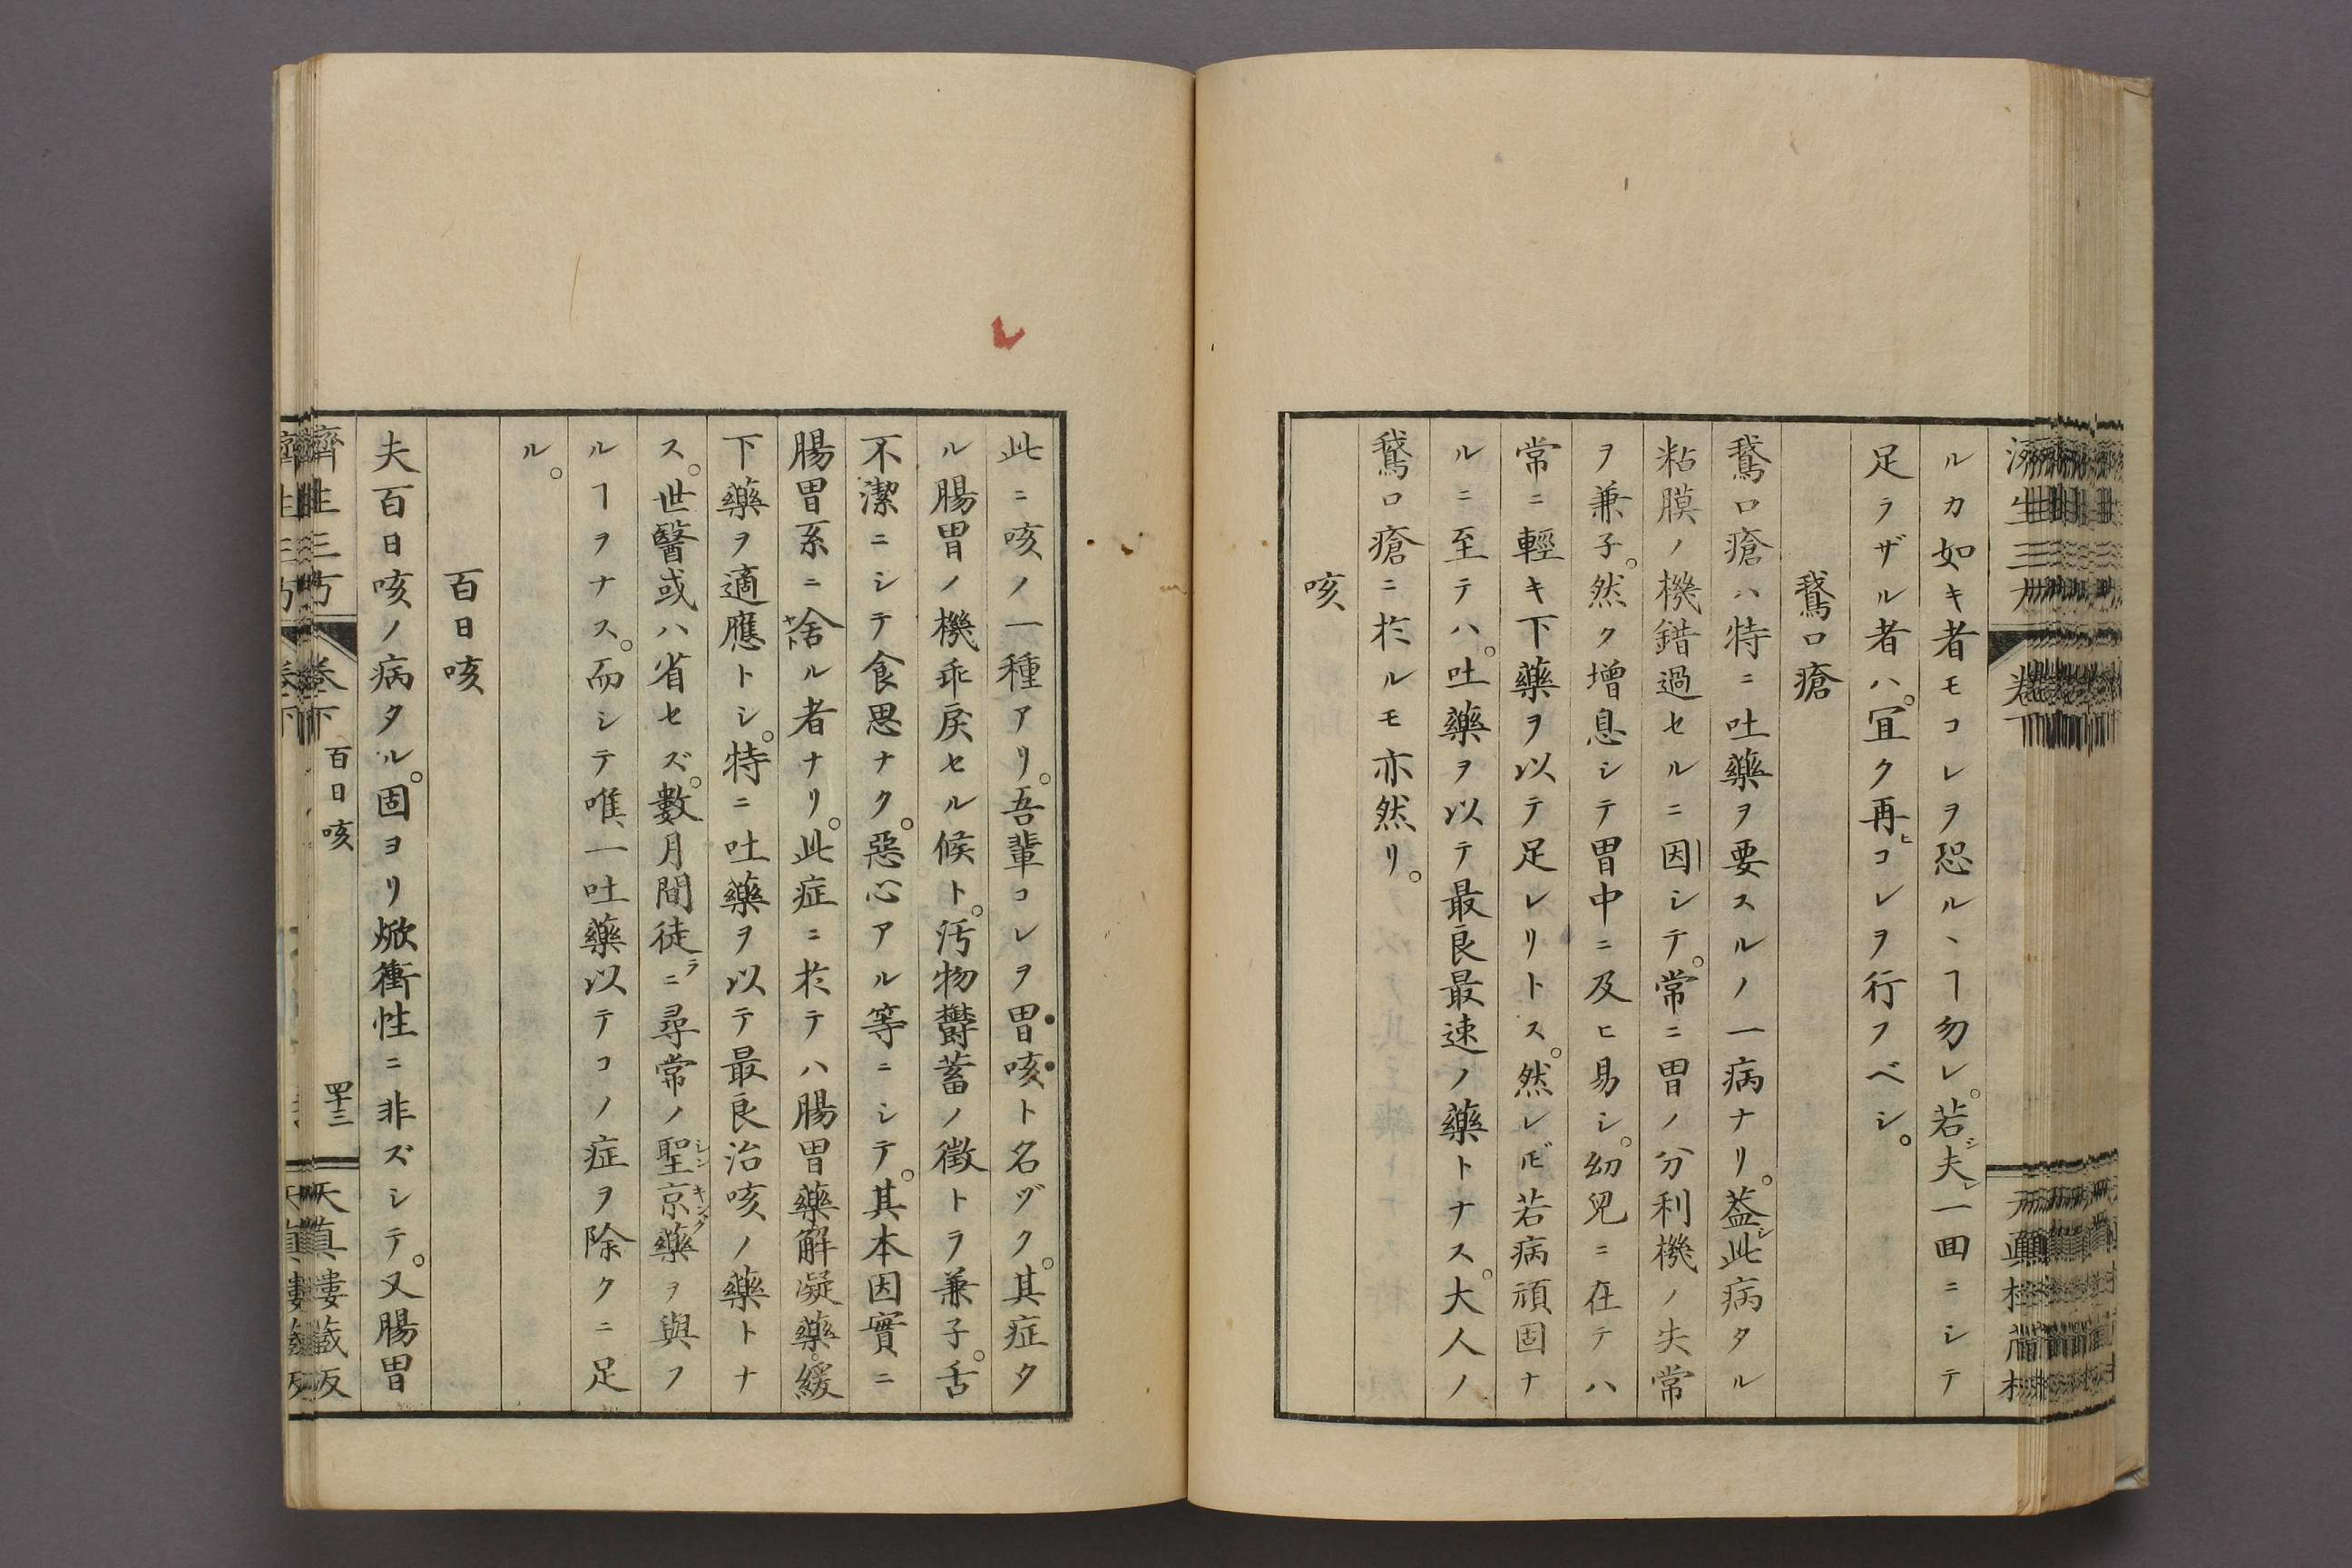 ルカ如キ者モコレヲ恐ルヽヿ勿レ。若シ夫レ一回ニシテ
足ラザル者ハ。宜ク再ヒコレヲ行フベシ。
鵞口瘡
鵞口瘡ハ特ニ吐藥ヲ要スルノ一病ナリ。葢シ此病タル
粘膜ノ機錯過セルニ因シテ。常ニ胃ノ分利機ノ失常
ヲ兼子。然ク増息シテ胃中ニ及ヒ易シ。幼兒ニ在テハ
常ニ輕キ下藥ヲ以テ足レリトス。然レ𪜈若病頑固ナ
ルニ至テハ。吐藥ヲ以テ最良最速ノ藥トナス。大人ノ
鵞口瘡ニ於ルモ亦然リ。
咳
此ニ咳ノ一種アリ。吾輩コレヲ胃咳ト名ヅク。其症タ
ル腸胃ノ機乖戻セル候ト。汚物欝蓄ノ徴トラ兼子。舌
不潔ニシテ食思ナク。惡心アル等ニシテ。其本因實ニ
腸胃系ニ舍ヤトル者ナリ。此症ニ於テハ腸胃藥解凝藥。緩
下藥ヲ適應トシ。特ニ吐藥ヲ以テ最良治咳ノ藥トナ
ス。世醫或ハ省セズ。數月間徒ラニ尋常ノ聖京藥シンキングヲ與フ
ルヿヲナス。而シテ唯一吐藥以テコノ症ヲ除クニ足
ル。
百日咳
夫百日咳ノ病タル。固ヨリ焮衝性ニ非ズシテ。又腸胃
濟生三方 卷下 百日咳 四十三 天真樓蔵板